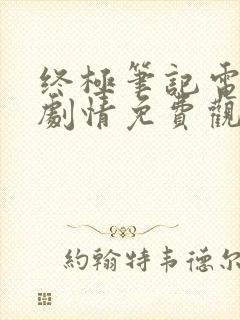 终極筆記電
劇情免費觀
約翰特韦德尔